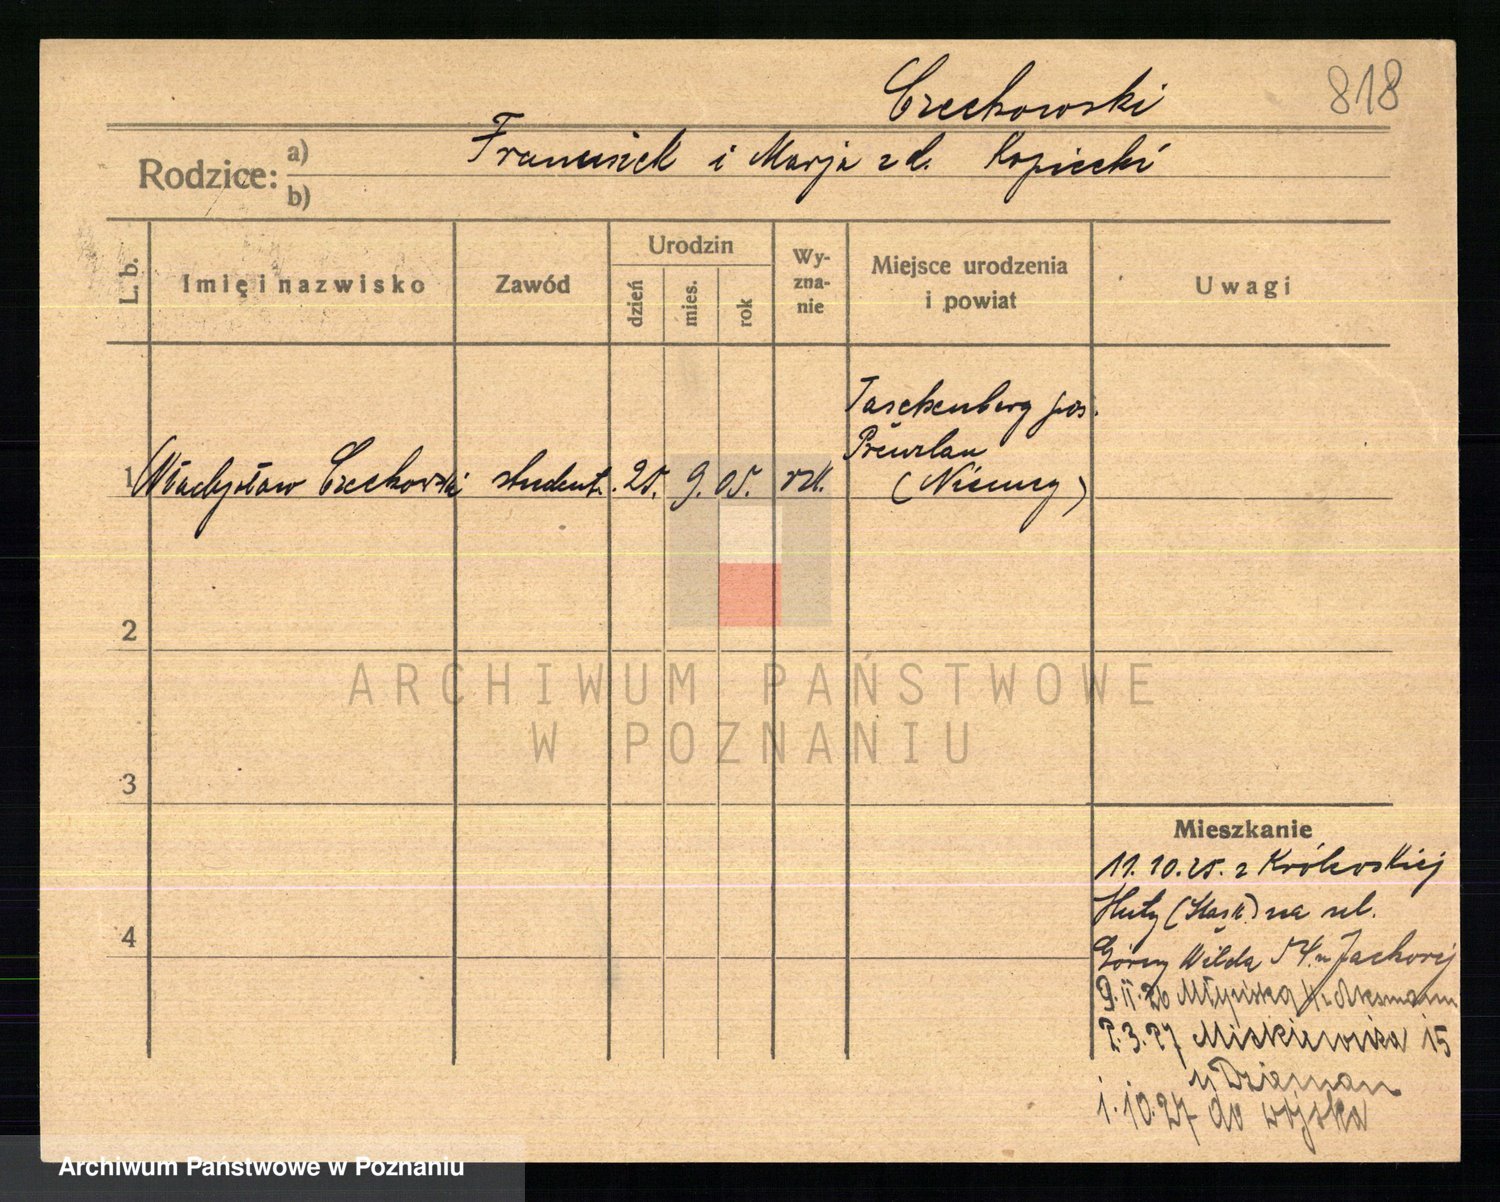 Czechowski 818
Rodzice: a) Franciszek i Marja z d. Kopiecki
b)
L. b. Imię i nazwisko Zawód Urodzin dzień mies. rok Wy-zna-nie Miejsce urodzenia i powiat Uwagi
Taschenberg pow.
Prenzlau
1 Władysław Czechowski student. 25. 9. 05. rzk. (Niemcy)
2
ARCHIWUM PAŃSTWOWE
W POZNANIU
3
Mieszkanie
11.10.25. z Królewskiej
Huty (Śląsk) na ul.
4
Górny Wilda 54. u
9.II.26 Młyńska
2.3.27 Mickiewicza 15
u Dzieman
1.10.27 do wojska
Archiwum Państwowe w Poznaniu